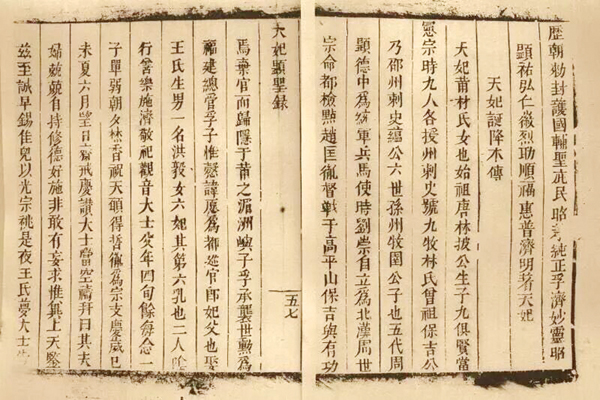 歷朝勅封護國輔聖庇民昭純正孚濟妙靈昭
顯祐弘仁徽烈助順福惠普濟明著天妃
天妃誕降本傳
天妃莆林氏女也始祖唐林披公生子九俱賢當
憲宗時九人各授州刺史號九牧林氏曾祖保吉公
乃邵州刺史蘊公六世孫州牧圉公子也五代周
顯德中為統軍兵馬使時劉崇自立為北漢周世
宗命都檢點趙匡胤督戰于高平山保吉與有功
天妃顯聖錄
五七
焉棄官而歸隱于莆之湄洲嶼子孚承襲世勲為
福建總管孚子惟愨諱願為都巡官即妃父也娶
王氏生男一名洪毅女六妃其第六乳也二人陰
行善樂施濟敬祀觀音大士父年四旬餘每念一
子單弱朝夕焚香祝天願得哲胤為宗支慶歲己
未夏六月望日齋戒慶讚大士當空禱拜曰某夫
婦兢兢自持修德好施非敢有妄求惟冀上天鑒
茲至誠早錫佳兒以光宗祧是夜王氏夢大士告